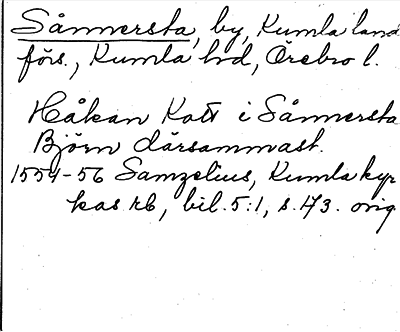 Sånnersta, by, Kumla land
förs., Kumla hd, Örebro l.
Håkan Kott i Sånnersta
Björn därsammast.
1554-56 Samzelius, Kumla kyr
kas rb, bil. 5:1, s. 173. orig